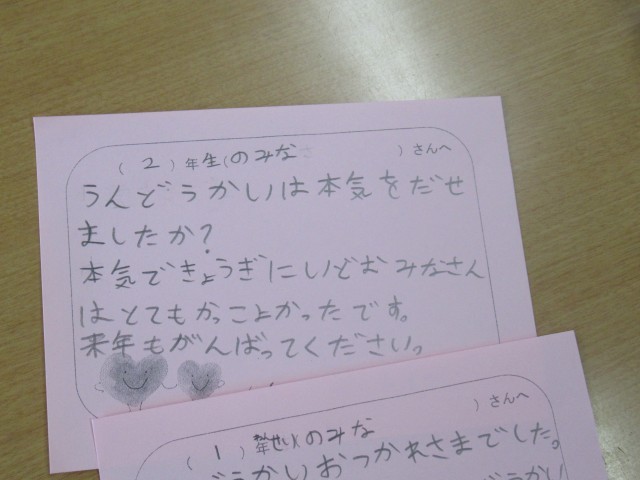 (2)年生(のみな )さんへ
うんどうかいは本気をだせ
ましたか?
本気できょうぎにいどむみなさん
はとてもかっこよかったです。
来年もがんばってください。
(1)年せい(のみな )さんへ
どうかいおつかれさまでした。
どうかい